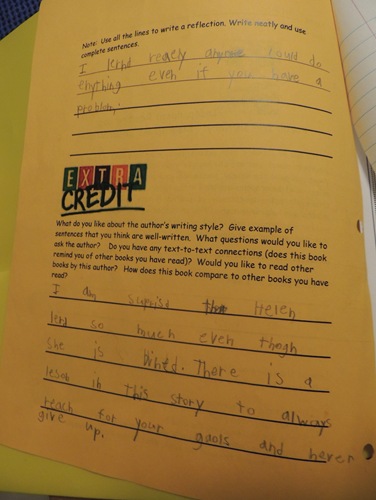 Note: Use all the lines to write a reflection. Write neatly and use
complete sentences.
I lernd realy could do
enything even if you have a
problem.
EXTRA
CREDIT
What do you like about the author's writing style? Give example of
sentences that you think are well-written. What questions would you like to
ask the author? Do you have any text-to-text connections (does this book
remind you of other books you have read)? Would you like to read other
books by this author? How does this book compare to other books you have
read?
I am suprisd that Helen
lernd so much even thogh
She is blined. There is a
leson in this story to always
reach for your gaols and never
give up.